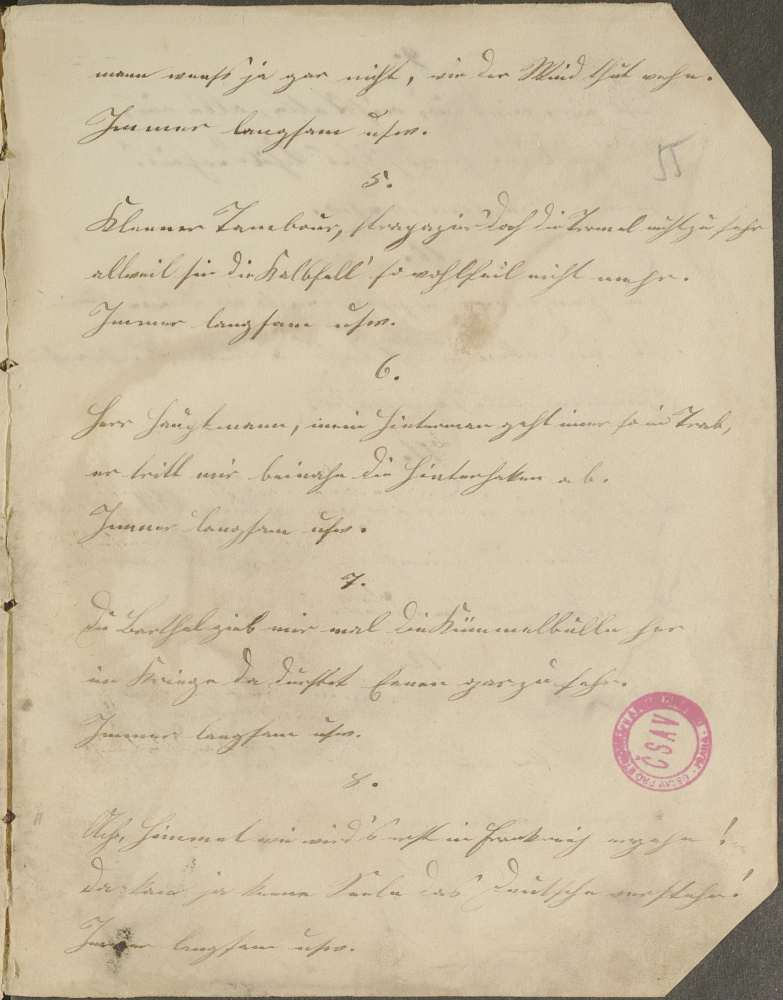 mann weuß ja gar nicht, wie der Wind thut wehn.
Immer langsam usw.
5.
Kleener Tambour, strapazier' doch die Trommel nicht zu sehr
allweil sin die Kalbfell' so wohlfeil nicht mehr.
Immer langsam usw.
6.
Herr Hauptmann, mein Hinterman geht immer so in Trab,
er tritt mir beinahe die Hinterhaken ab.
Immer langsam usw.
7.
Du Barthel gieb mir mal die Kümmelbulle her
im Kriege da durstet Eenen gar zu sehr.
Immer langsam usw.
8.
Ach, Himmel wie wird's erst in Frankreich ergehn!
da kann ja keene Seele das Deutsche verstehn!
Immer langsam usw.
ČSAV